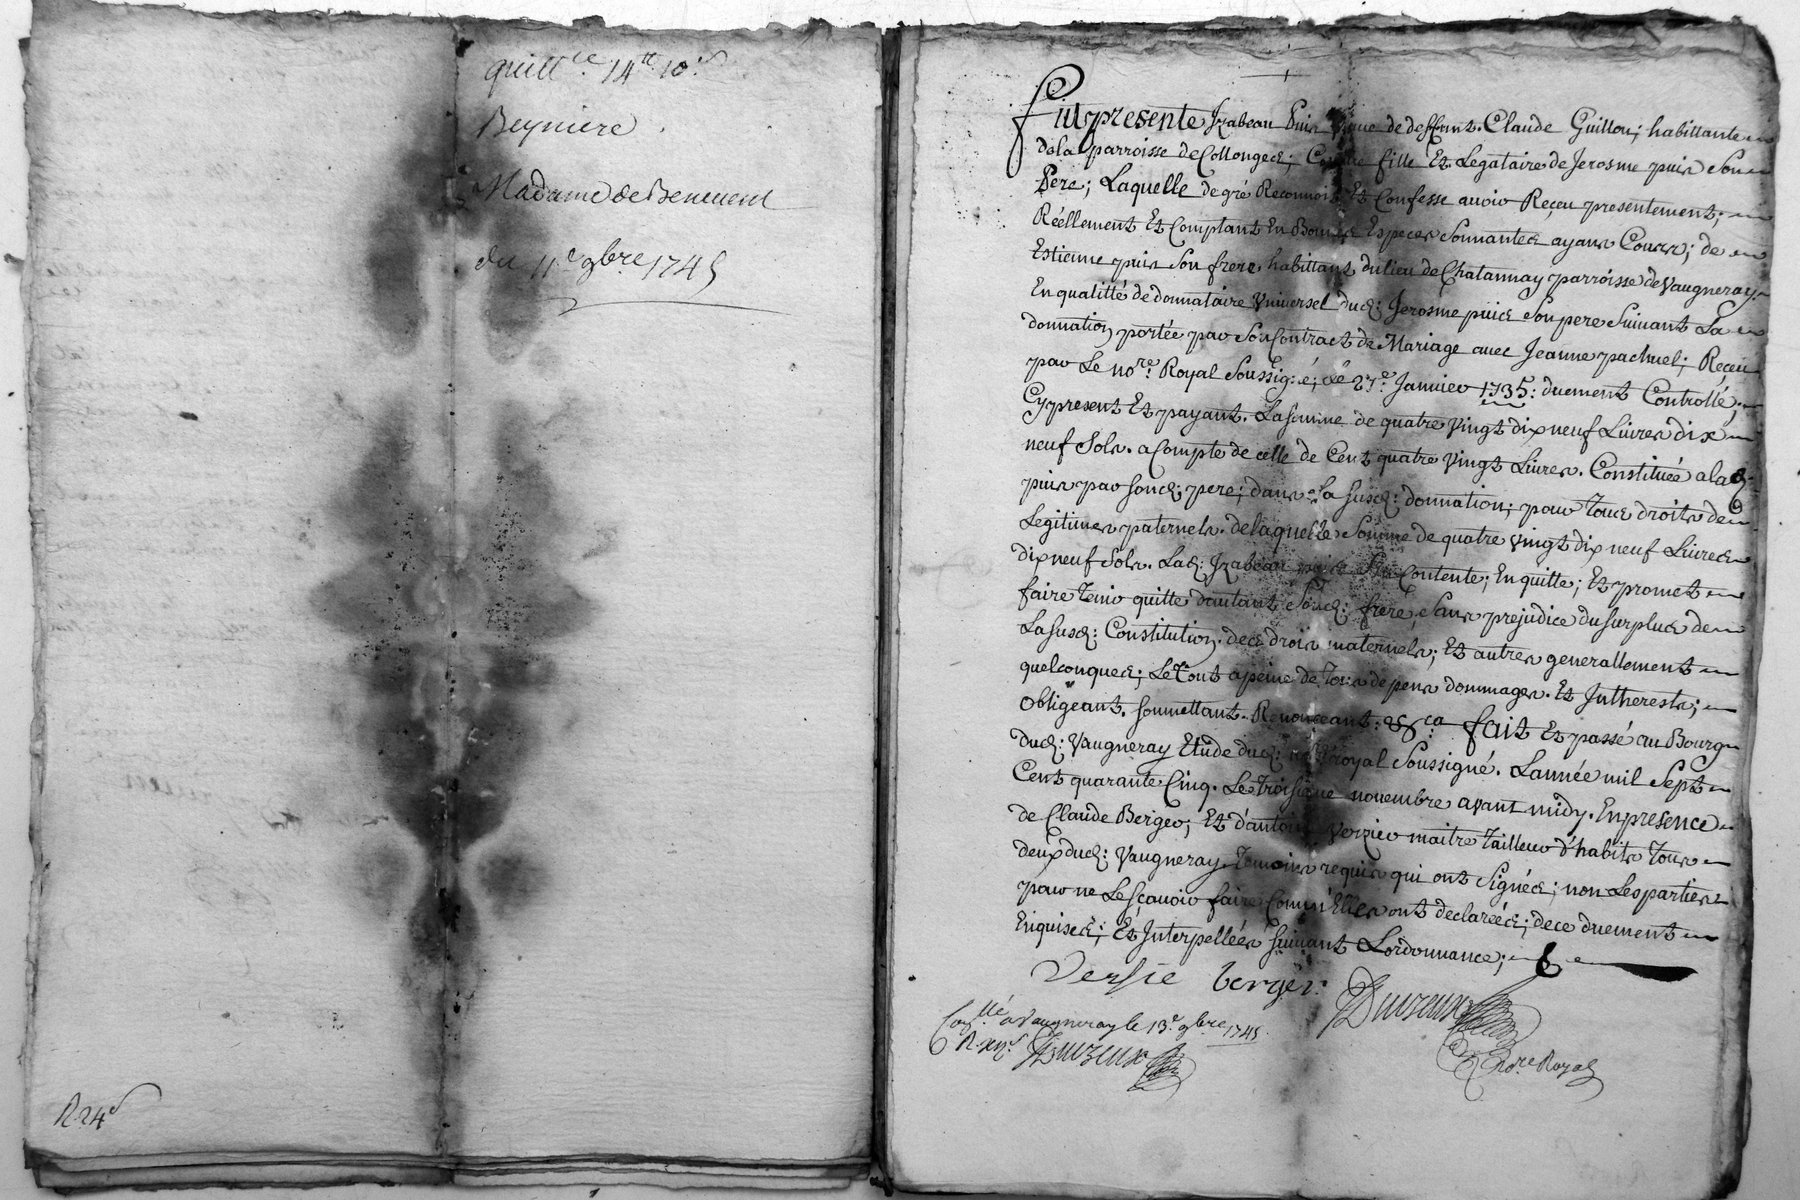 quitt.ce 14tt 10s
Beyniere
Madame de Benevent
du 11e 9bre 1745
R 24s
Fut presente Izabeau Puis veuve de deffunt Claude Guillon; habittante
de la parroisse de Collonges; Comme fille Et Legataire de Jerosme puis Son
Pere; Laquelle de gré Reconnoit Et Confesse avoir Reçeu presentement;
Réellement Et Comptant En Bonnes Especes Sonnantes ayans Cours; de
Estienne puis Son frere habittant du lieu de Chatannay parroisse de Vaugneray
En qualitté de donnataire Vniversel dud: Jerosme puis Son pere Suivant La
donnation portée par Son Contract de Mariage avec Jeanne pachuel; Reçeu
par Le nore. Royal Soussigné; Le 27e. Janvier 1735: duement Controllé;
Cy present Et payant. La Somme de quatre Vingt dix neuf Livres dix
neuf Sols. a Compte de celle de Cent quatre Vingt Livres. Constituée a lad:
puis par Sond: pere; dans la Susd: donnation; pour Tous droits de
Legitimes paternels. de laquelle Somme de quatre vingt dix neuf Livres
dix neuf Sols. Lad: Izabeau puis Se Contente; En quitte; Et promet
faire Tenir quitte d'autant Sond: frere, Sans prejudice du Surplus de
La Susd: Constitution. de Ces droits maternels; Et autres generallement
quelconques; Le Tout a peine de Tous depens dommages. Et Intherests;
obligeant. Soumettant. Renonceant: &ca. fait Et passé au Bourg
dud: Vaugneray Etude dud: nore royal Soussigné. Lannée mil Sept
Cent quarante Cinq. Le troisieme novembre avant midy. En presence
de Claude Berger; Et d'antoine Verzier maitre Tailleur d'habits Tous
deux dud: Vaugneray Temoins requis qui ont Signés; non Les parties
pour ne Le Sçavoir faire Comm'Elles ont declarées; de ce duement
Enquises; Et Interpellées Suivant Lordonnance;
Versie berger Duvzeux
Conllé a Vaugneray le 13e 9bre 1745
R. xns Duvzeux
nore Royal